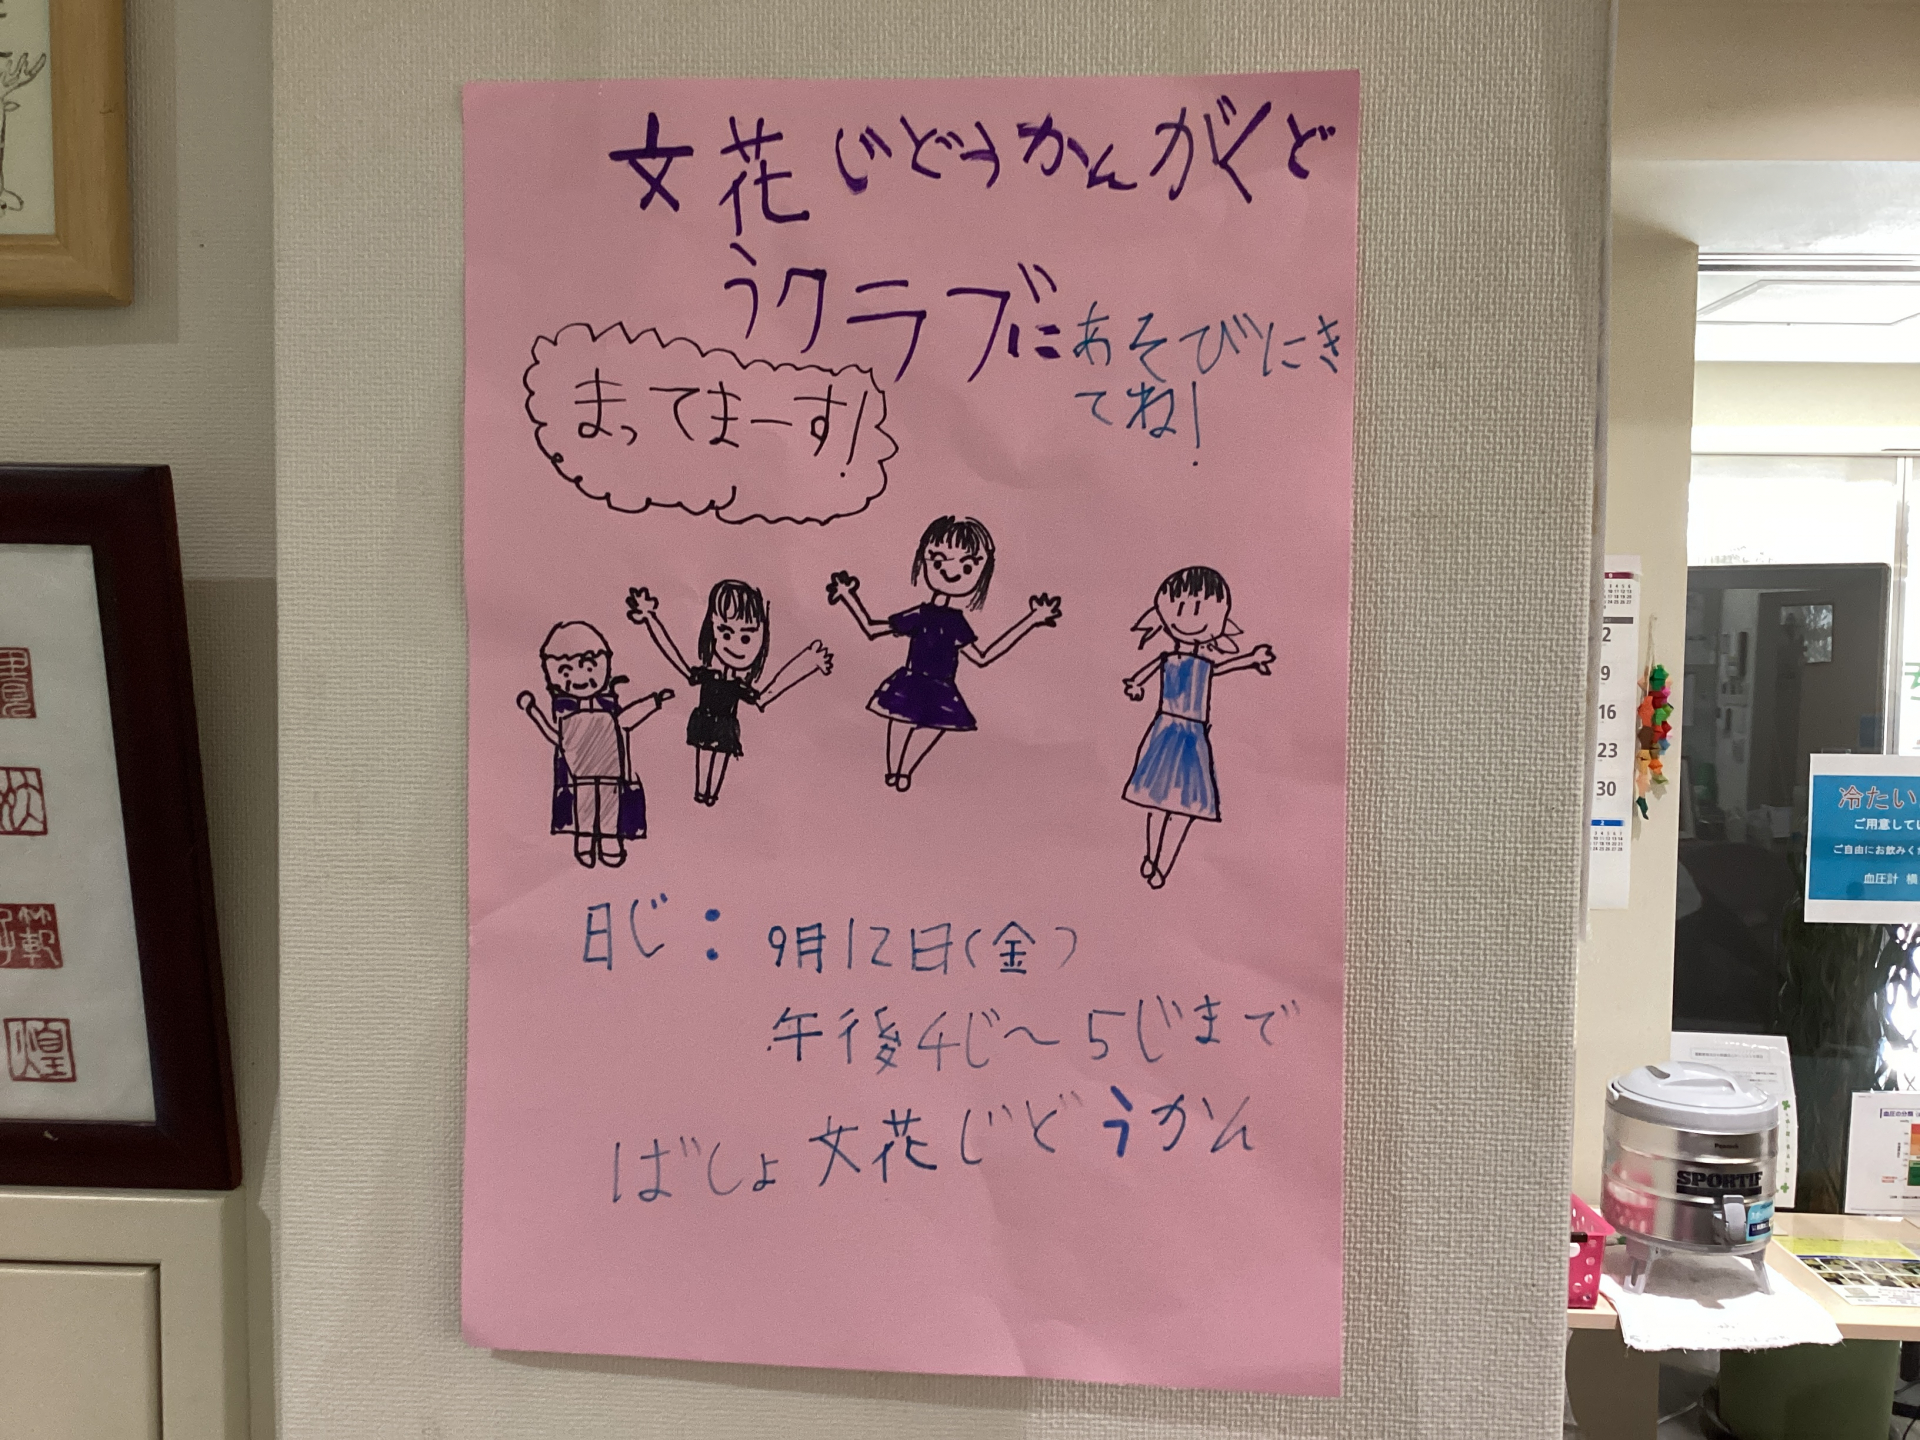 文花じどうかんがくど
うクラブにあそびにき
てね!
まってまーす!
日じ:9月12日(金)
午後4じ〜5じまで
ばしょ文花じどうかん
2
9
16
23
30
冷たい
ご用意してい
ご自由にお飲みく
血圧計 横
Peacock
SPORTIF